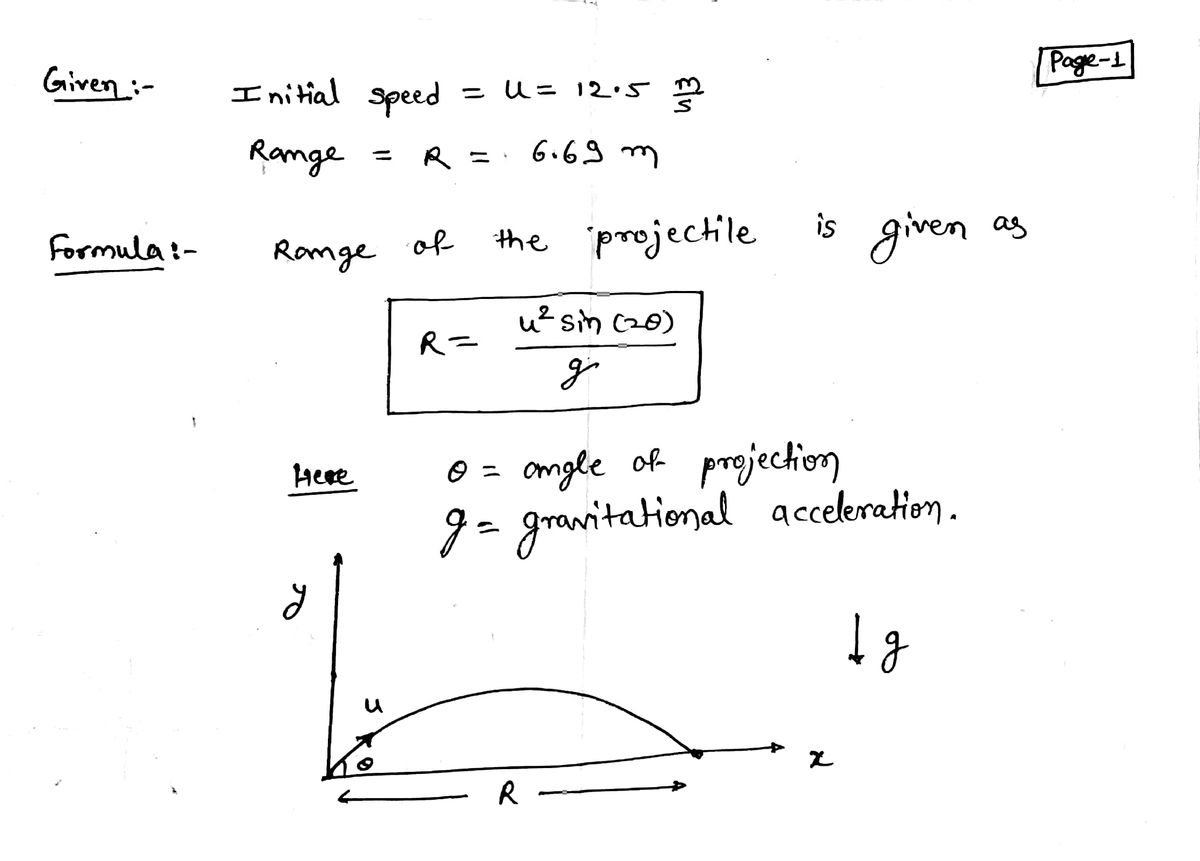 Page-1
Given :-
Initial speed = u = 12.5 m/s
Range = R = 6.69 m
Formula :-
Range of the projectile is given as
R = u² sin (2θ) / g
Here
θ = angle of projection
g = gravitational acceleration.
y
↓ g
u
θ
x
R